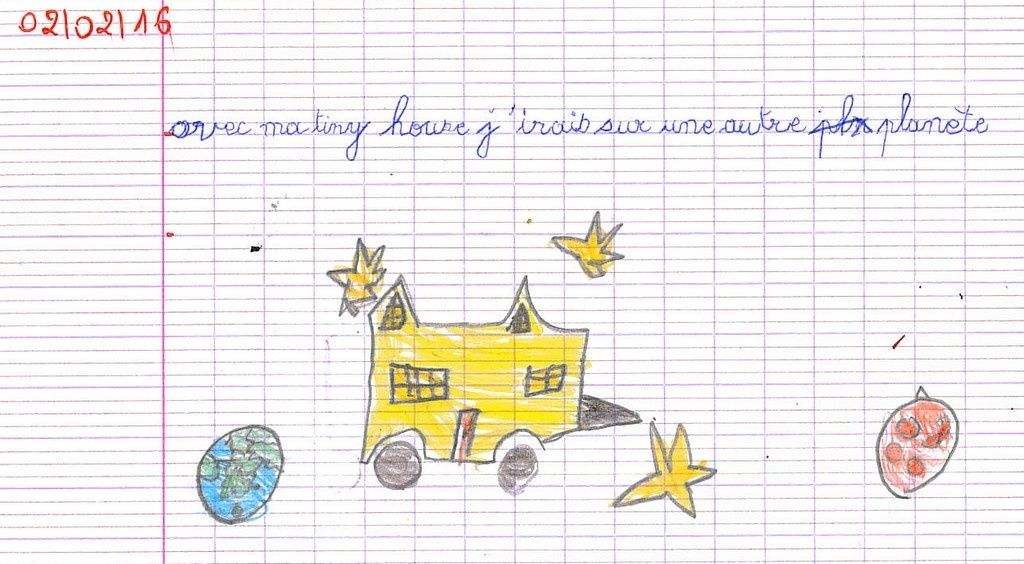 02/02/16
avec ma tiny house j'irais sur une autre planète